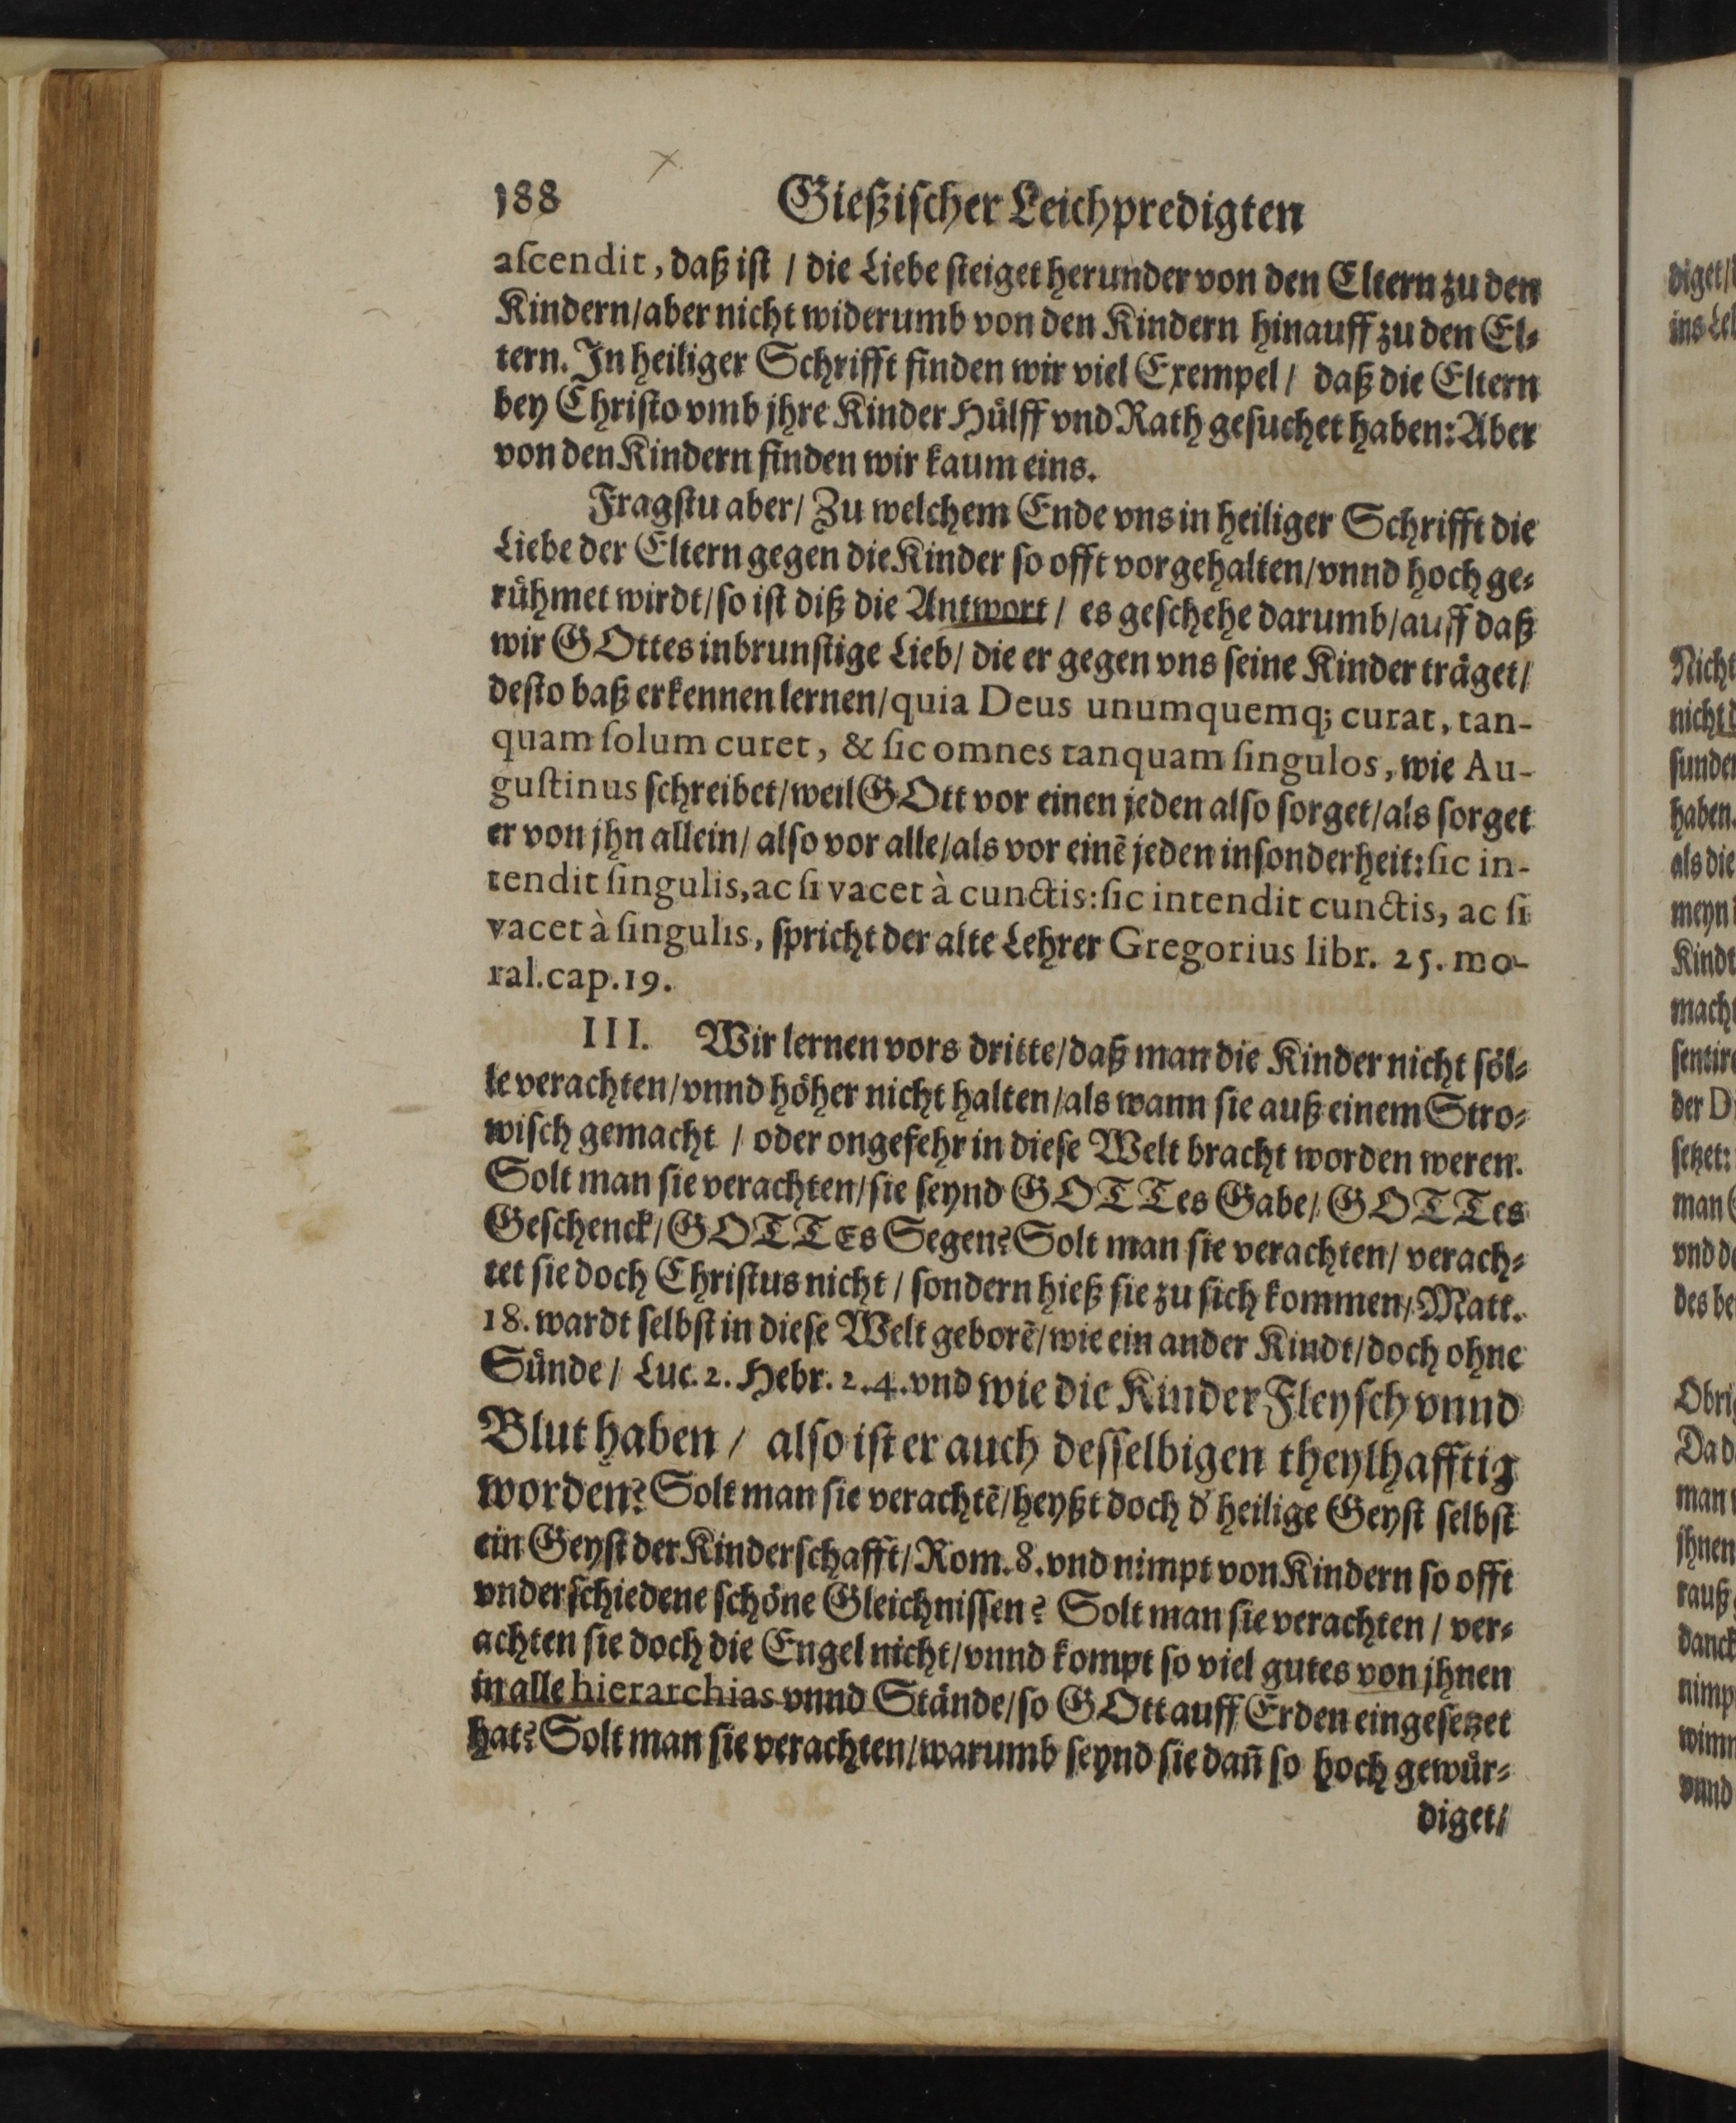 188 Gießischer Leichpredigten
ascendit, daß ist / die Liebe steiget herunder von den Eltern zu den
Kindern/aber nicht widerumb von den Kindern hinauff zu den El-
tern. In heiliger Schrifft finden wir viel Exempel / daß die Eltern
bey Christo vmb jhre Kinder Hülff vnd Rath gesuchet haben: Aber
von den Kindern finden wir kaum eins.
Fragstu aber/ Zu welchem Ende vns in heiliger Schrifft die
Liebe der Eltern gegen die Kinder so offt vorgehalten/vnnd hoch ge-
rühmet wirdt/so ist diß die Antwort / es geschehe darumb/auff daß
wir GOttes inbrunstige Lieb/ die er gegen vns seine Kinder träget/
desto baß erkennen lernen/quia Deus unumquemq; curat, tan-
quam solum curet, & sic omnes tanquam singulos, wie Au-
gustinus schreibet/weil GOtt vor einen jeden also sorget/als sorget
er von jhn allein/ also vor alle/als vor einẽ jeden insonderheit: sic in-
tendit singulis, ac si vacet à cunctis: sic intendit cunctis, ac si
vacet à singulis, spricht der alte Lehrer Gregorius libr. 25. mo-
ral. cap. 19.
III. Wir lernen vors dritte/daß man die Kinder nicht söl-
le verachten/vnnd höher nicht halten/als wann sie auß einem Stro-
wisch gemacht / oder ongefehr in diese Welt bracht worden weren.
Solt man sie verachten/sie seynd GOTTes Gabe/ GOTTes
Geschenck/GOTTEs Segen? Solt man sie verachten/ verach-
tet sie doch Christus nicht / sondern hieß sie zu sich kommen/Matt.
18. wardt selbst in diese Welt geborẽ/wie ein ander Kindt/doch ohne
Sünde / Luc. 2. Hebr. 2. 4. vnd wie die Kinder Fleysch vnnd
Blut haben / also ist er auch desselbigen theylhafftig
worden? Solt man sie verachtẽ/heyßt doch d' heilige Geyst selbst
ein Geyst der Kinderschafft/Rom. 8. vnd nimpt von Kindern so offt
vnderschiedene schöne Gleichnissen? Solt man sie verachten / ver-
achten sie doch die Engel nicht/vnnd kompt so viel gutes von jhnen
in alle hierarchias vnnd Stände/so GOtt auff Erden eingesetzet
hat? Solt man sie verachten/warumb seynd sie dañ so hoch gewür-
diget/